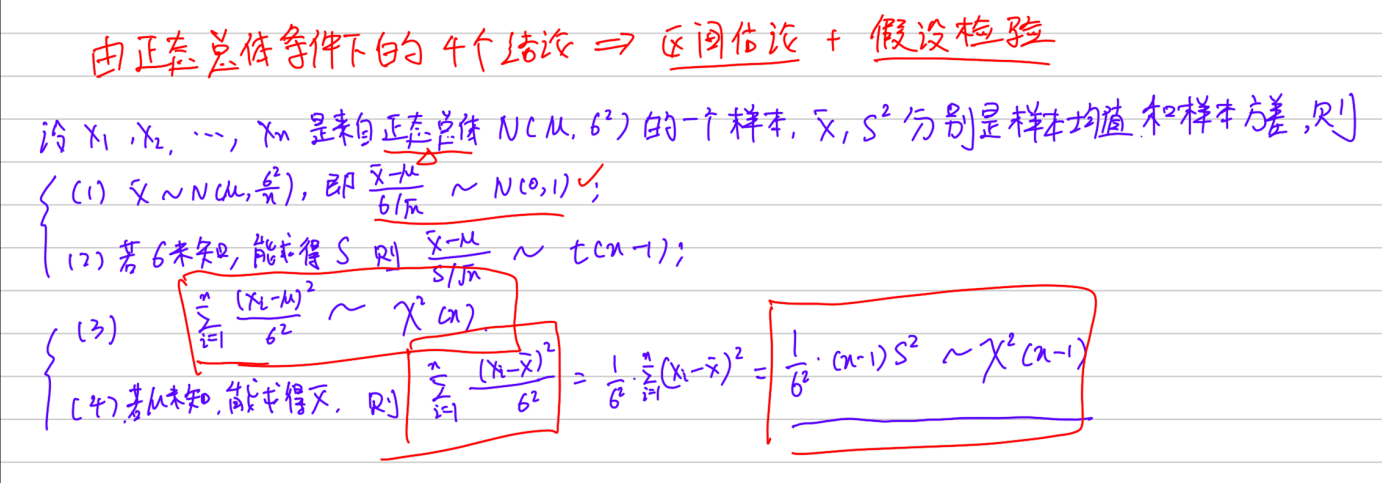 由正态总体条件下的4个结论 ⇒ 区间估计 + 假设检验
设 X₁, X₂, ⋯, Xₙ 是来自正态总体 N(μ, σ²) 的一个样本, X̄, S² 分别是样本均值和样本方差, 则
(1) X̄ ~ N(μ, σ²/n), 即 (X̄-μ)/(σ/√n) ~ N(0,1) ✓;
(2) 若σ未知, 能求得 S 则 (X̄-μ)/(S/√n) ~ t(n-1);
(3) ∑ᵢ₌₁ⁿ (Xᵢ-μ)²/σ² ~ χ²(n)
(4) 若μ未知, 能求得X̄, 则 ∑ᵢ₌₁ⁿ (Xᵢ-X̄)²/σ² = 1/σ² · ∑ᵢ₌₁ⁿ (Xᵢ-X̄)² = 1/σ² · (n-1)S² ~ χ²(n-1)